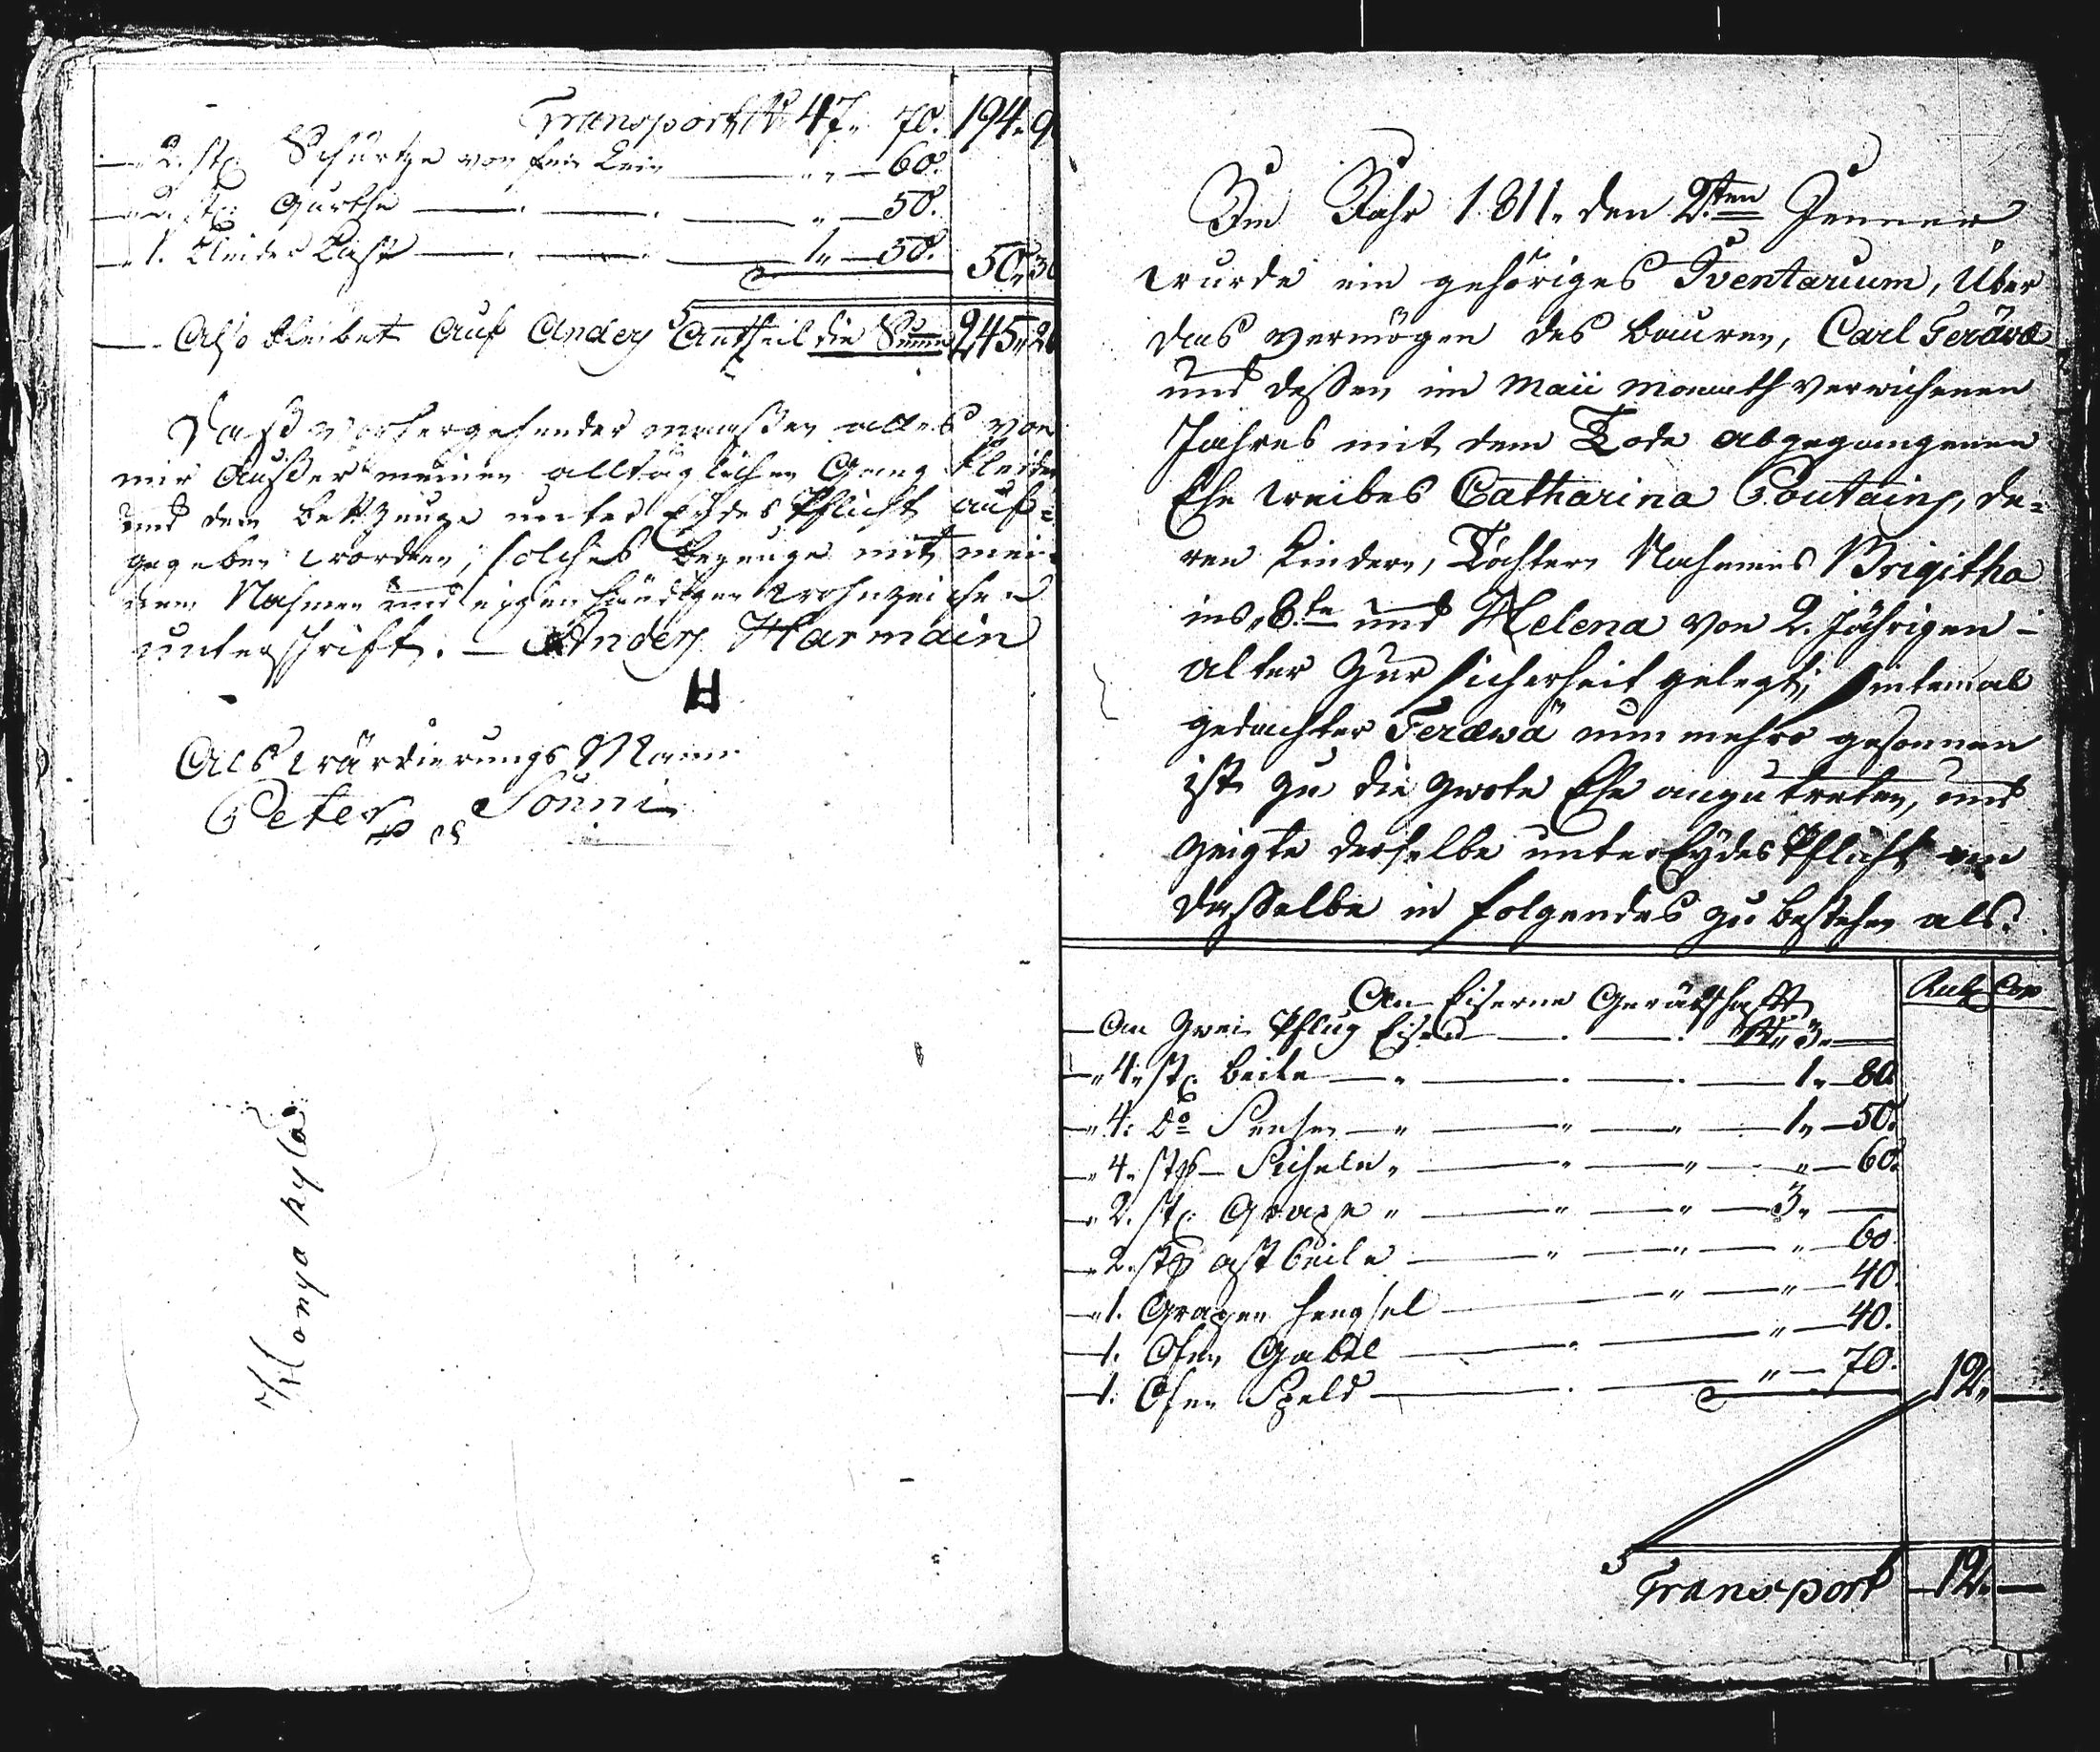 Transport R 47„ 70. 194„ 9
„ 2. stc. Schürtze von fein Lein „ „ 60.
„ 2. stc. Gurthe „ 50.
„ 1. Kleider Kast 1„ 50. 50„ 30
Also bleibet auf Anders Antheil die Summe 245„ 20
Daß vorhergehender maaßen alles von
mir außer meinen alltäglichen Gang Kleider
und dem Bettzeuge unter Eydes Pflicht auf=
gegeben worden, solches bezeuge mit mei=
nem Nahmen und eigenhändigen
unterschrift. – Anders Harmain
H
Als Wärdierungs Mann
Peter Sonni
Konya kylä
Im Jahr 1811. den 2ten Jenner
wurde ein gehöriges Iventarium, Über
das vermögen des bauren, Carl Teräva
und deßen im Maii Monath verwichenen
Jahres mit dem Tode abgegangenen
Ehe weibes Catharina Poutain, de=
ren Kindern, Töchtern Nahmens Brigitha
ins 6.te und Helena von 2. jährigen –
alter zur sicherheit gelegt, sintemal
gedachter Teräwä nun mehro gesonnen
ist zu die zwote Ehe anzutreten, und
zeigte derselbe unter Eydes Pflicht
daßelbe in folgendes zu bestehen als:
An Eiserne Gerätschafft Rub Cop
An Zwei Pflug Eisen R„ 3„
„ 4„ stc. beile „ 1„ 80.
„ 4: do Sensen „ „ „ 1„ 50.
„ 4. stc Sicheln „ „ „ „ 60.
„ 2. stc. Grape „ „ „ 3„
„ 2. stc ast beile „ „ „ 60.
„ 1. Grapen hengsel „ „ 40.
1. Ofen Gabel „ 40.
1. Ofen Speld „ 70. 12„
Transport 12„